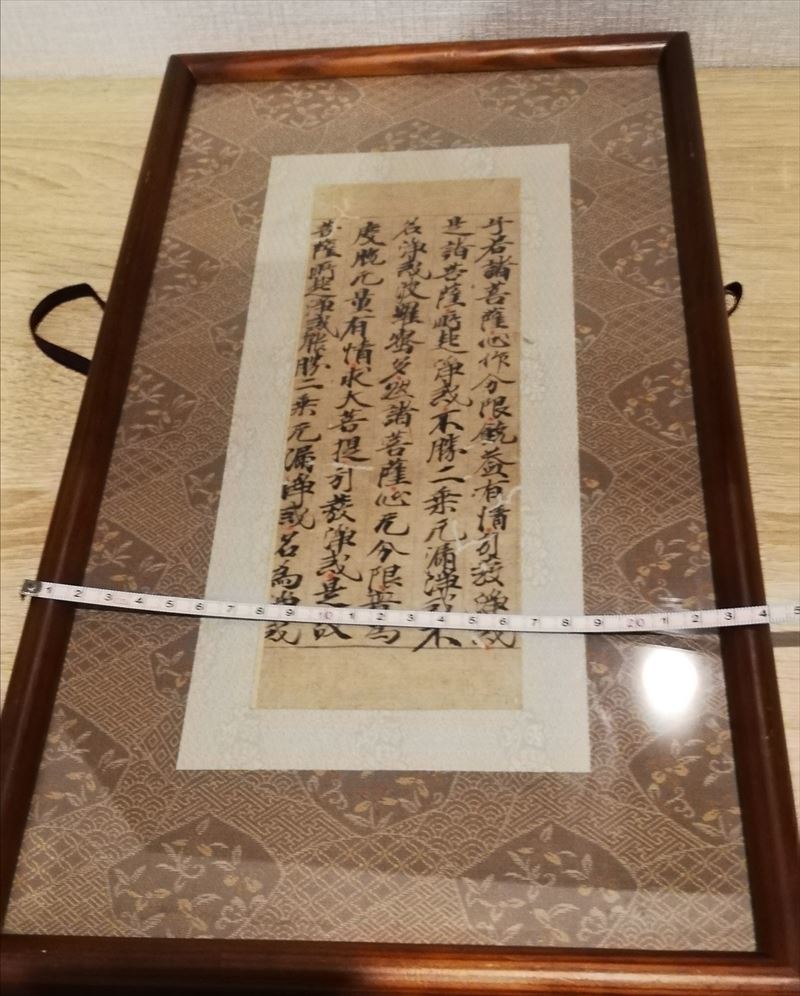 若諸菩薩心作分限饒益有情引發淨戒
是諸菩薩所起淨戒不勝二乘无漏淨戒不
名淨戒波羅蜜多然諸菩薩心无分限普為
度脫无量有情求大菩提引發淨戒是故
菩薩所起淨戒能勝二乘无漏淨戒名為淨戒
1 2 3 4 5 6 7 8 9 10 1 2 3 4 5 6 7 8 9 20 1 2 3 4 5